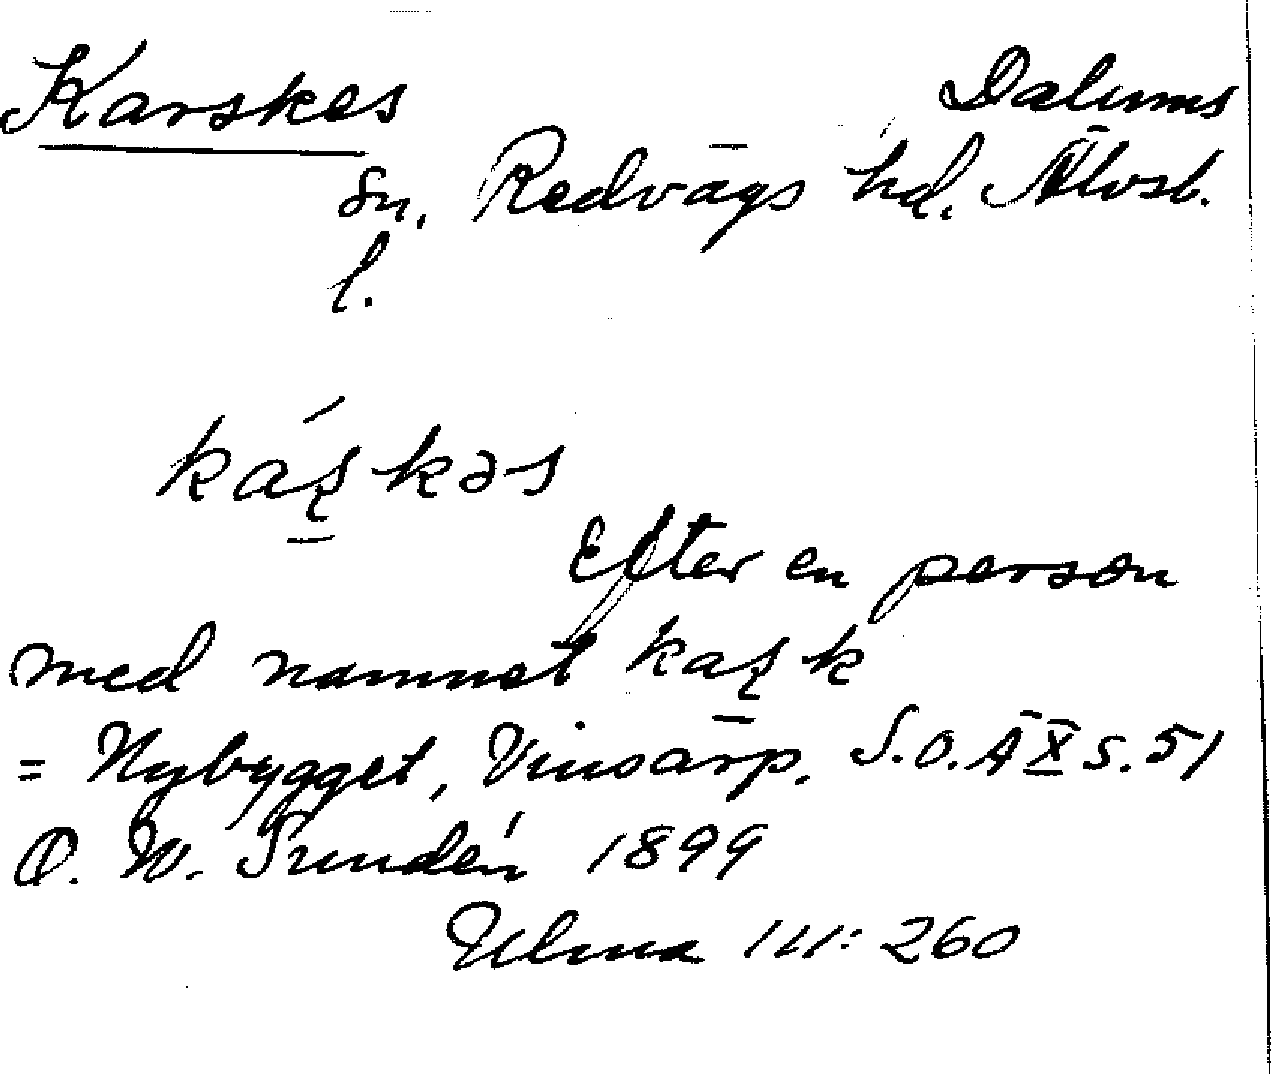 Karskes Dalums
sn. Redvägs hd. Älvsb.
l.
káʂkəs
Efter en person
med namnet kaʂk
= Nybygget, Vinsarp. S.O.Ä X s. 51
O. W. Sundén 1899
Ulma 111: 260